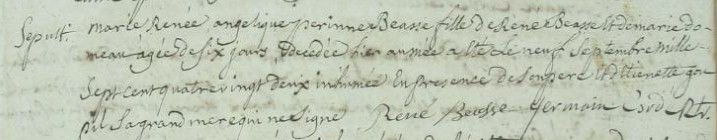 Sepult: marie Renée angelique perinne Beasse fille de René Beasse et de marie do-
neau agée de six jours, decedée hier au a été le neuf Septembre mille-
Sept cent quatre vingt deux inhumée En presence de Son pere et d'Etienette gou
pil Sa grand mere qui ne Signe. René Beasse Germain